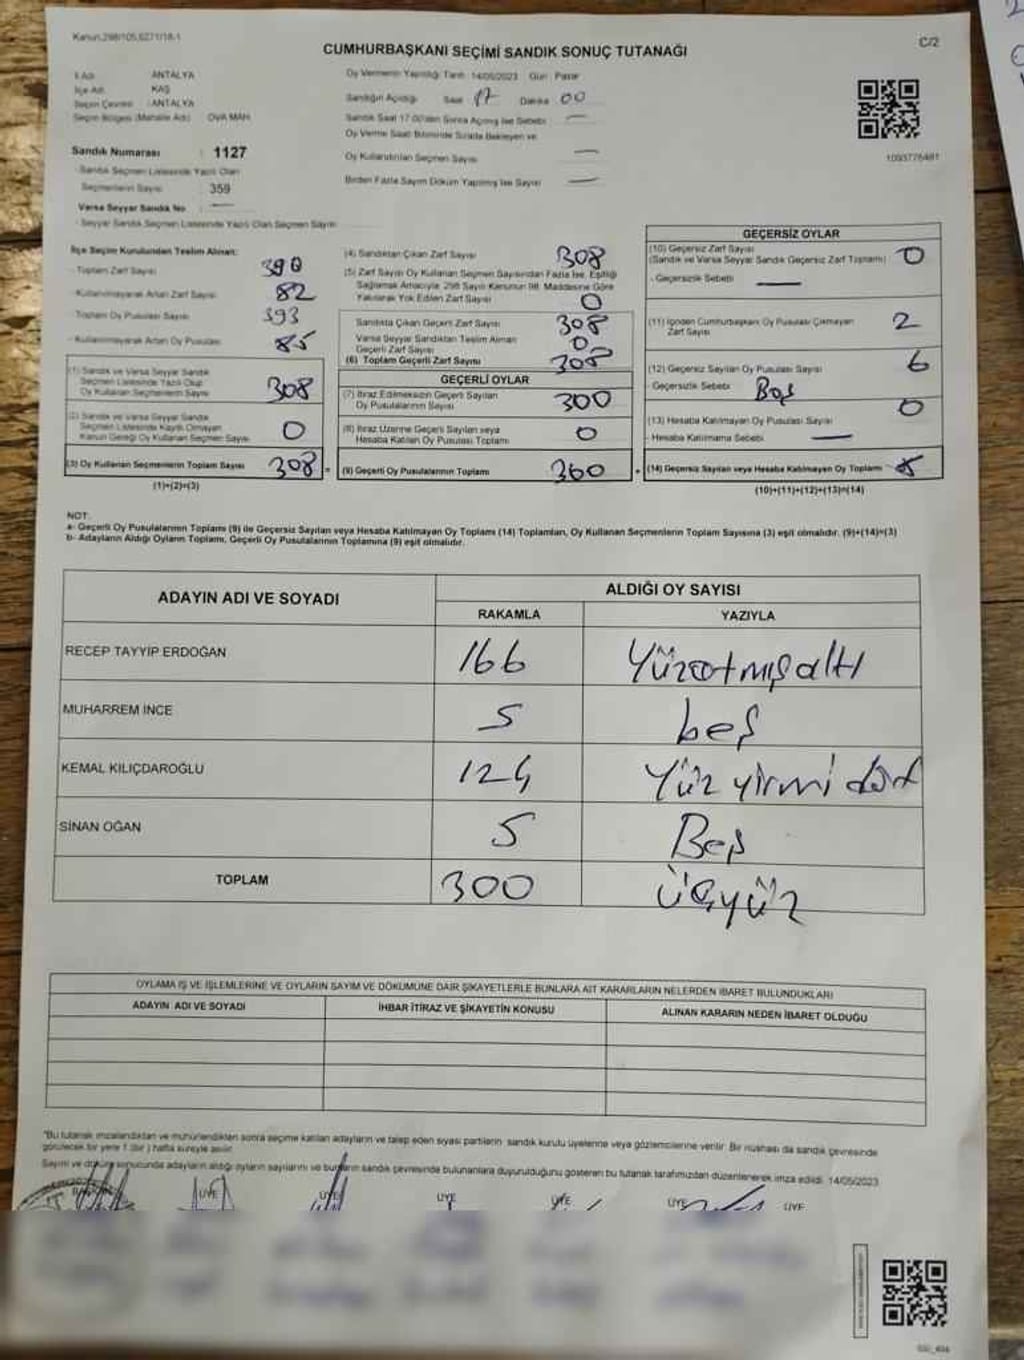 Kanun:298/105,6271/18-1
C/2
CUMHURBAŞKANI SEÇİMİ SANDIK SONUÇ TUTANAĞI
İl Adı : ANTALYA
İlçe Adı : KAŞ
Seçim Çevresi : ANTALYA
Seçim Bölgesi (Mahalle Adı) : OVA MAH
Sandık Numarası : 1127
- Sandık Seçmen Listesinde Yazılı Olan
Seçmenlerin Sayısı : 359
Varsa Seyyar Sandık No : —
- Seyyar Sandık Seçmen Listesinde Yazılı Olan Seçmen Sayısı
Oy Vermenin Yapıldığı Tarih: 14/05/2023 Gün: Pazar
Sandığın Açıldığı Saat 17 Dakika 00
Sandık Saat 17.00'den Sonra Açılmış İse Sebebi —
Oy Verme Saati Bitiminde Sırada Bekleyen ve
Oy Kullandırılan Seçmen Sayısı —
Birden Fazla Sayım Döküm Yapılmış İse Sayısı —
1093776481
İlçe Seçim Kurulundan Teslim Alınan:
- Toplam Zarf Sayısı 390
- Kullanılmayarak Artan Zarf Sayısı 82
- Toplam Oy Pusulası Sayısı 393
- Kullanılmayarak Artan Oy Pusulası 85
(1) Sandık ve Varsa Seyyar Sandık
Seçmen Listesinde Yazılı Olup
Oy Kullanan Seçmenlerin Sayısı 308
(2) Sandık ve Varsa Seyyar Sandık
Seçmen Listesinde Kaydı Olmayan
Kanun Gereği Oy Kullanan Seçmen Sayısı 0
(3) Oy Kullanan Seçmenlerin Toplam Sayısı 308
(1)+(2)=(3)
(4) Sandıktan Çıkan Zarf Sayısı 308
(5) Zarf Sayısı Oy Kullanan Seçmen Sayısından Fazla İse, Eşitliği
Sağlamak Amacıyla 298 Sayılı Kanunun 98. Maddesine Göre
Yakılarak Yok Edilen Zarf Sayısı 0
Sandıkta Çıkan Geçerli Zarf Sayısı 308
Varsa Seyyar Sandıktan Teslim Alınan
Geçerli Zarf Sayısı 0
(6) Toplam Geçerli Zarf Sayısı 308
GEÇERLİ OYLAR
(7) İtiraz Edilmeksizin Geçerli Sayılan
Oy Pusulalarının Sayısı 300
(8) İtiraz Üzerine Geçerli Sayılan veya
Hesaba Katılan Oy Pusulası Toplamı 0
= (9) Geçerli Oy Pusulalarının Toplamı 300
GEÇERSİZ OYLAR
(10) Geçersiz Zarf Sayısı
(Sandık ve Varsa Seyyar Sandık Geçersiz Zarf Toplamı) 0
- Geçersizlik Sebebi —
(11) İçinden Cumhurbaşkanı Oy Pusulası Çıkmayan
Zarf Sayısı 2
(12) Geçersiz Sayılan Oy Pusulası Sayısı 6
- Geçersizlik Sebebi Boş
(13) Hesaba Katılmayan Oy Pusulası Sayısı 0
- Hesaba Katılmama Sebebi —
+ (14) Geçersiz Sayılan veya Hesaba Katılmayan Oy Toplamı
(10)+(11)+(12)+(13)=(14)
NOT:
a- Geçerli Oy Pusulalarının Toplamı (9) ile Geçersiz Sayılan veya Hesaba Katılmayan Oy Toplamı (14) Toplamları, Oy Kullanan Seçmenlerin Toplam Sayısına (3) eşit olmalıdır. (9)+(14)=(3)
b- Adayların Aldığı Oyların Toplamı, Geçerli Oy Pusulalarının Toplamına (9) eşit olmalıdır.
ADAYIN ADI VE SOYADI
ALDIĞI OY SAYISI
RAKAMLA YAZIYLA
RECEP TAYYİP ERDOĞAN 166 Yüzatmışaltı
MUHARREM İNCE 5 beş
KEMAL KILIÇDAROĞLU 124 Yüz yirmi dört
SİNAN OĞAN 5 Beş
TOPLAM 300 üçyüz
OYLAMA İŞ VE İŞLEMLERİNE VE OYLARIN SAYIM VE DÖKÜMÜNE DAİR ŞİKAYETLERLE BUNLARA AİT KARARLARIN NELERDEN İBARET BULUNDUKLARI
ADAYIN ADI VE SOYADI İHBAR İTİRAZ VE ŞİKAYETİN KONUSU ALINAN KARARIN NEDEN İBARET OLDUĞU
"Bu tutanak imzalandıktan ve mühürlendikten sonra seçime katılan adayların ve talep eden siyasi partilerin sandık kurulu üyelerine veya gözlemcilerine verilir. Bir nüshası da sandık çevresinde
görülecek bir yere 1 (bir) hafta süreyle asılır.
Sayım ve döküm sonucunda adayların aldığı oyların sayılarını ve bunların sandık çevresinde bulunanlara duyurulduğunu gösteren bu tutanak tarafımızdan düzenlenerek imza edildi. 14/05/2023
BAŞKAN ÜYE ÜYE ÜYE ÜYE ÜYE ÜYE